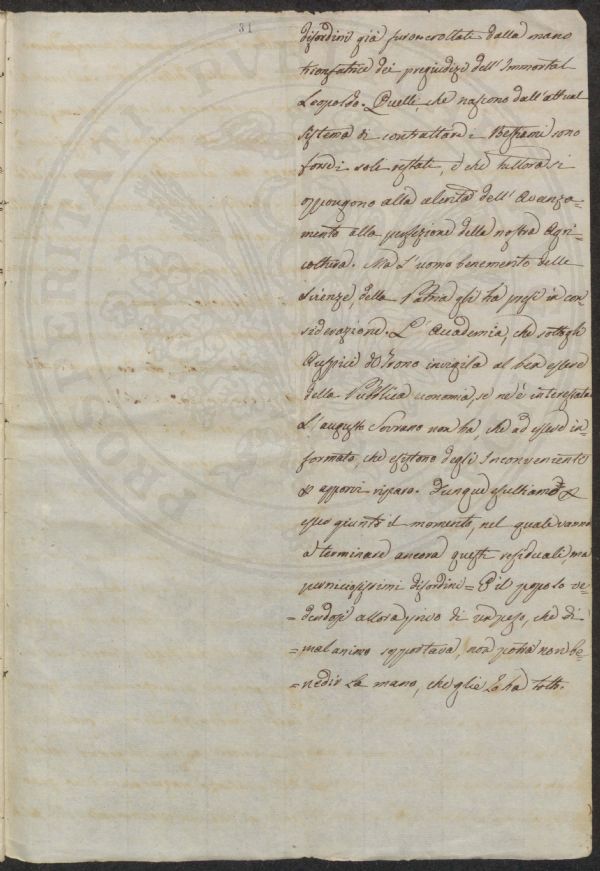 31
disordini già furon crollate dalla mano
trionfatrice dei pregiudizi dell'Immortal
Leopoldo. Quelli, che nascono dall'attual
sistema di contrattare i Bestiami sono
forse i soli restati, e che tuttora si
oppongono alla celerità dell'Avanza=
mento alla perfezione della nostra Agri=
coltura. Ma l'uomo benemerito delle
Scienze, della Patria gli ha presi in con
siderazione. L'Accademia, che sotto gli
Auspici del Trono invigila al ben essere
della Pubblica economia, se ne è interessata
L'augusto Sovrano non ha, che ad essere in=
formato, che esistono degli Inconvenienti
apporvi riparo. Dunque esultiamo
esser giunto il momento, nel quale vanno
a terminare ancora questi residuali, ma
perniciosissimi disordini = E il popolo ve=
= dendosi allora privo di un peso, che di
= mal animo sopportava, non potrà non be=
= nedir la mano, che glie lo ha tolto.
PROSPERITATI PUBLICAE